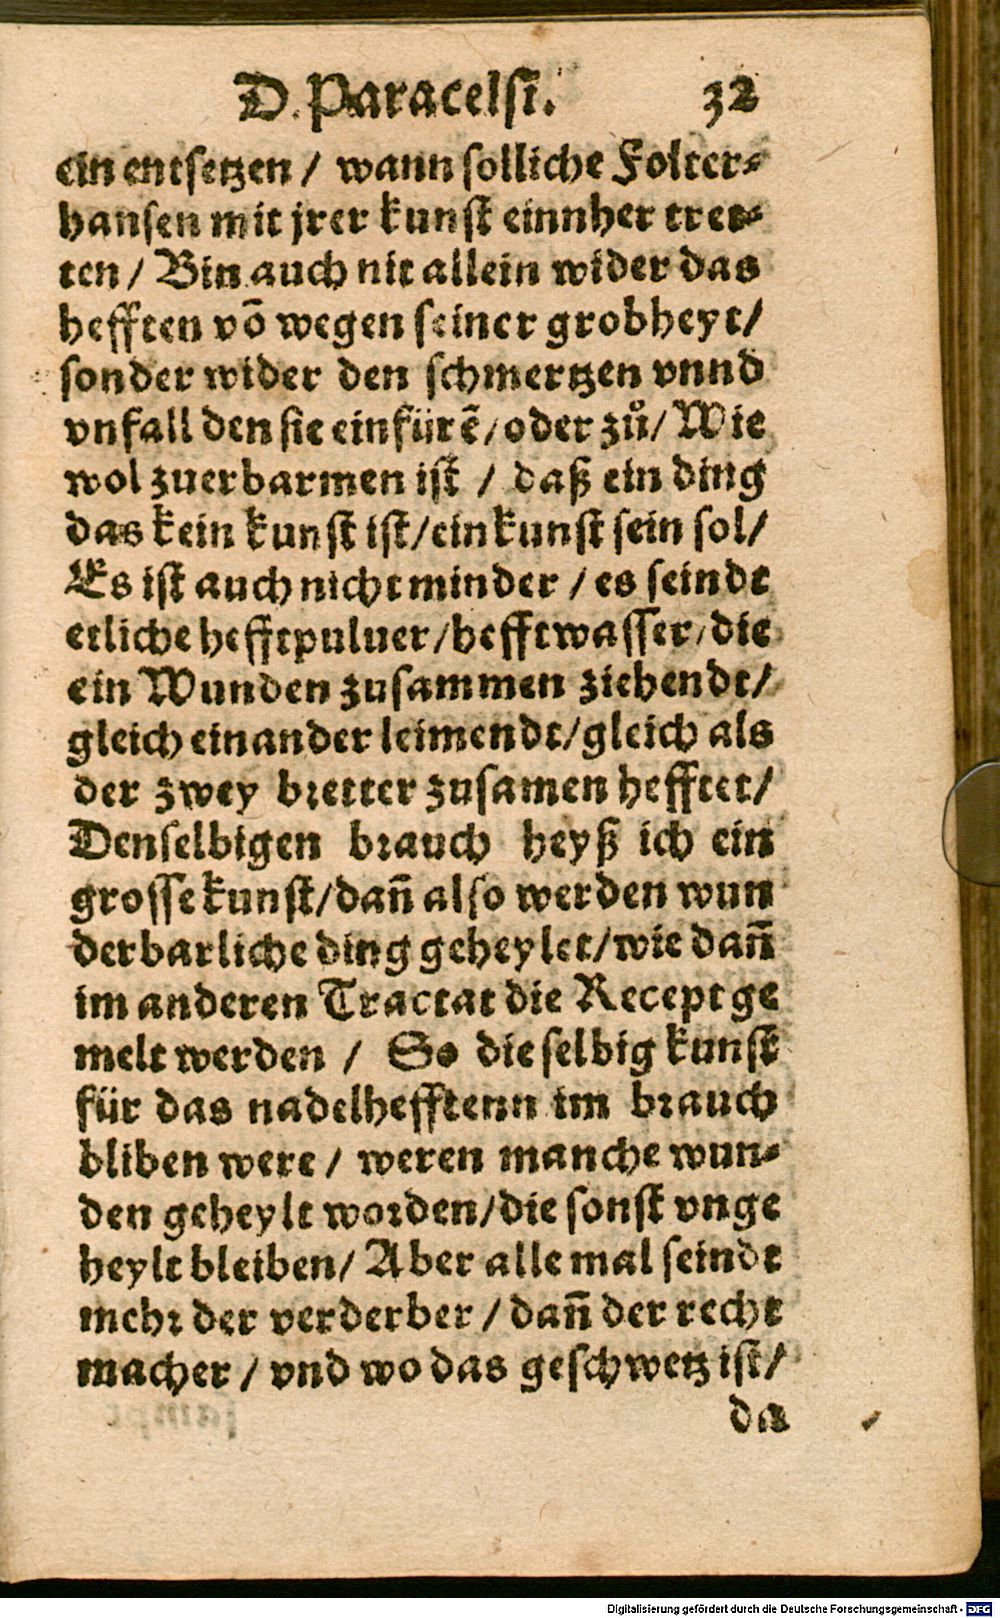 D. Paracelsi. 32
ein entsetzen / wann solliche Folter-
hansen mit jrer kunst einnher tret-
ten / Bin auch nit allein wider das
hefften võ wegen seiner grobheyt /
sonder wider den schmertzen vnnd
vnfall den sie einfürẽ / oder zů / Wie
wol zuerbarmen ist / daß ein ding
das kein kunst ist / ein kunst sein sol /
Es ist auch nicht minder / es seindt
etliche hefftpuluer / hefftwasser / die
ein Wunden zusammen ziehendt /
gleich einander leimendt / gleich als
der zwey bretter zusamen hefftet /
Denselbigen brauch heyß ich ein
grosse kunst / dañ also werden wun
derbarliche ding geheylet / wie dañ
im anderen Tractat die Recept ge
melt werden / So dieselbig kunst
für das nadelhefftenn im brauch
bliben were / weren manche wun-
den geheylt worden / die sonst vnge
heylt bleiben / Aber alle mal seindt
mehr der verderber / dañ der recht
macher / vnd wo das geschwetz ist /
da
Digitalisierung gefördert durch die Deutsche Forschungsgemeinschaft - DFG